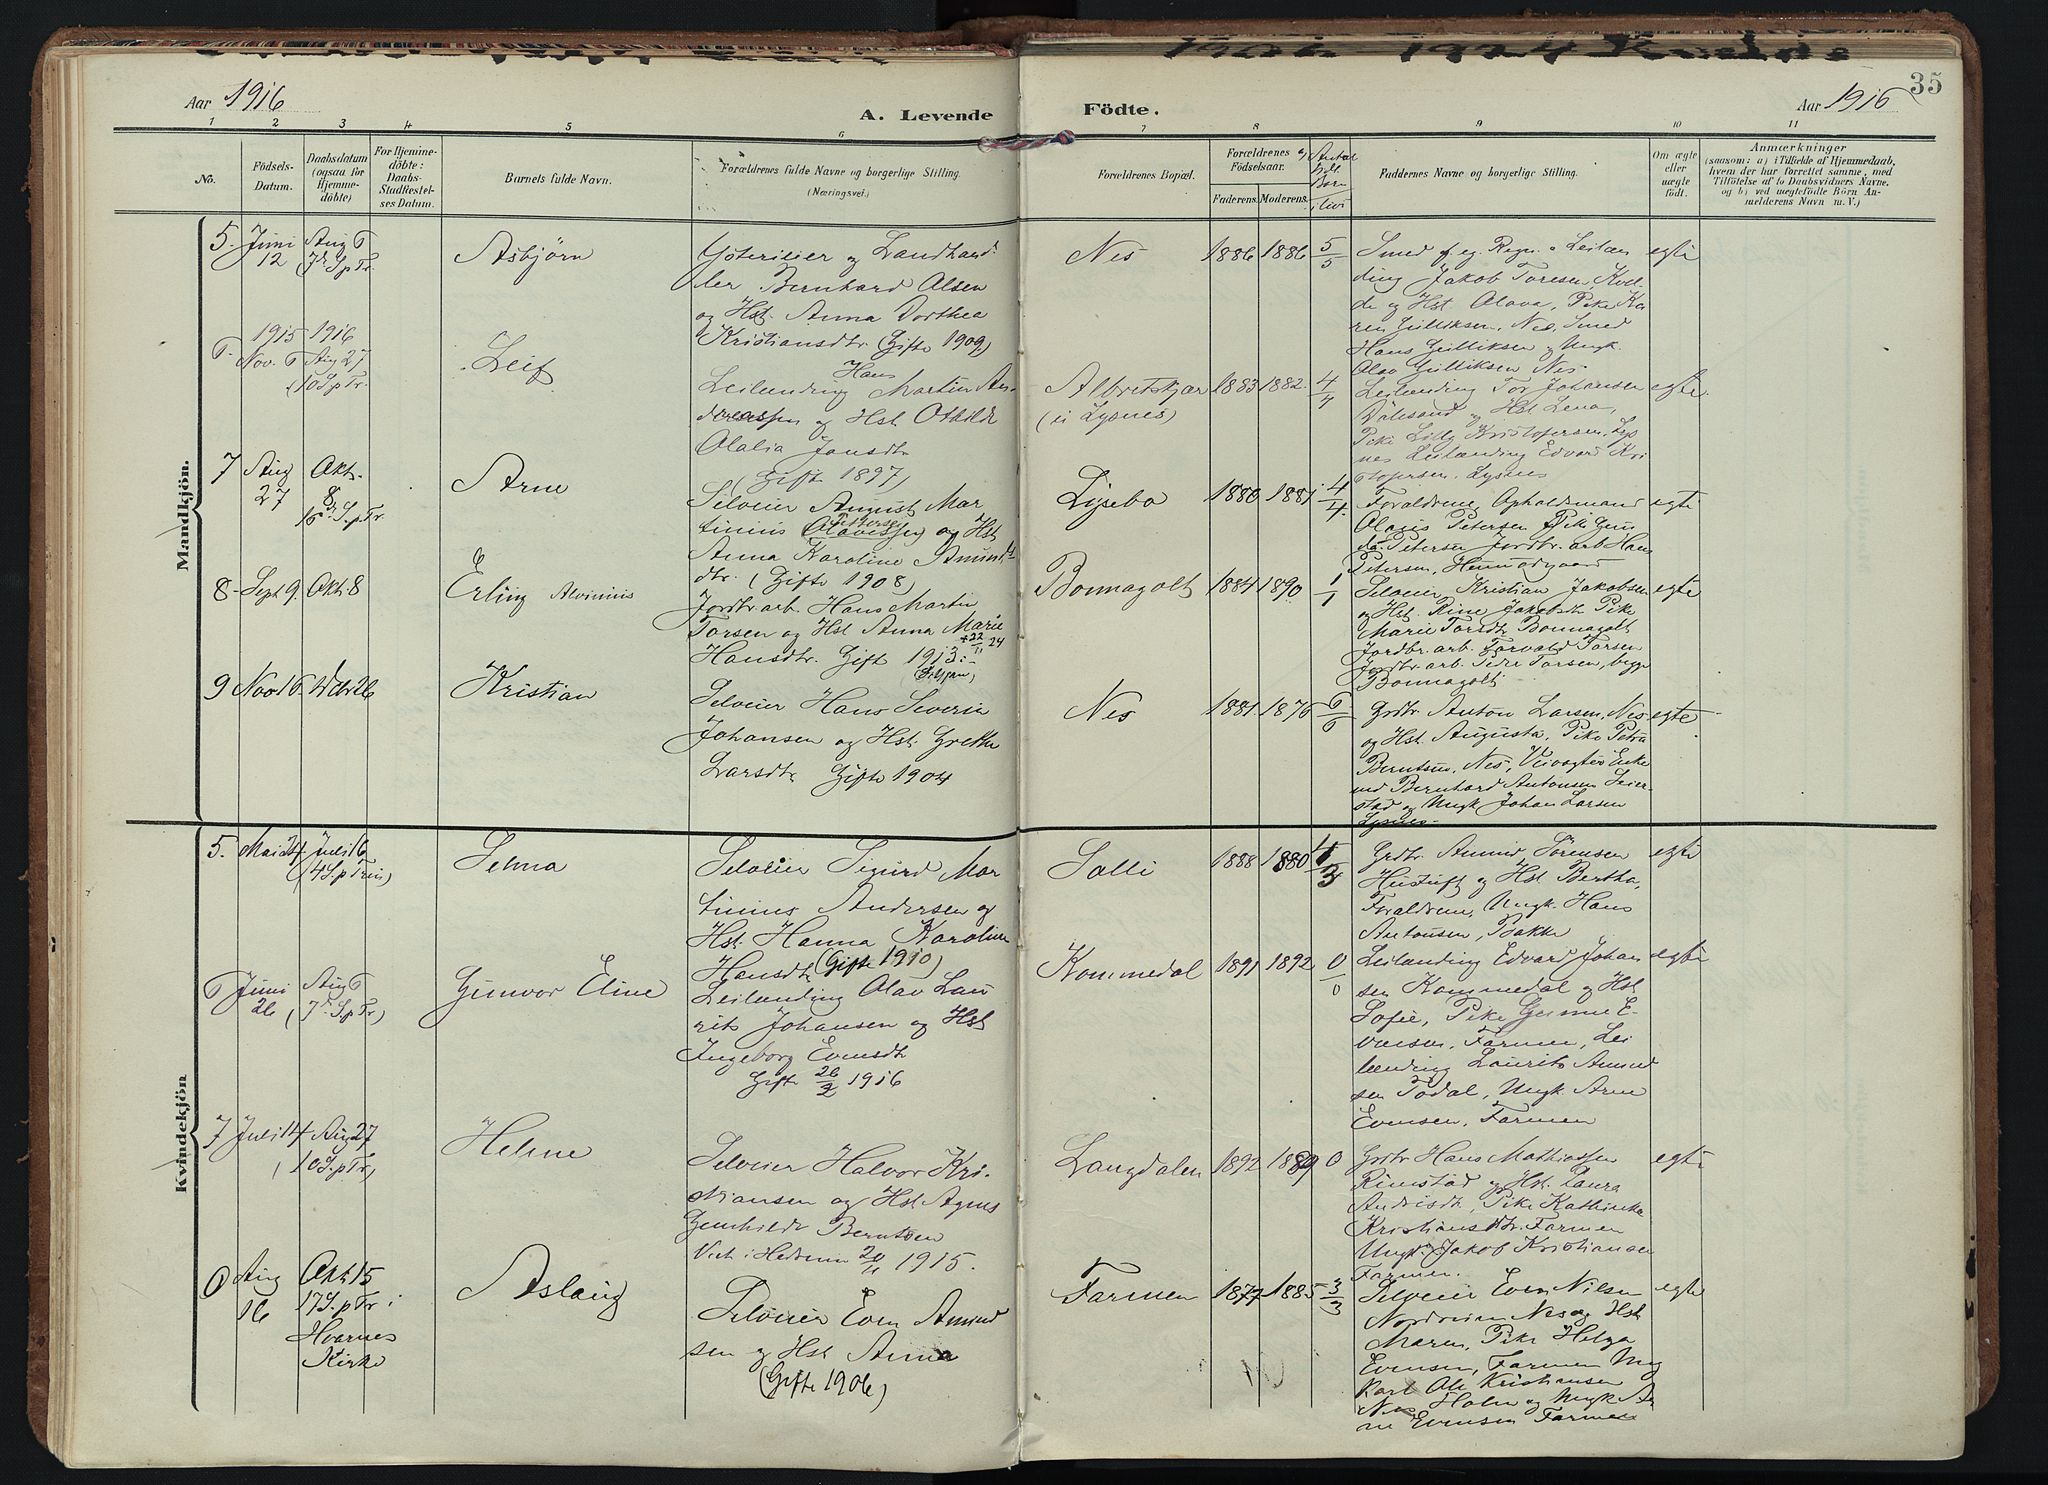 35
Aar 1916
A. Levende
Födte.
Aar 1916
1 2 3 4 5 6 7 8 9 10 11
No.
Födsels-
Datum.
Daabsdatum
(ogsaa for
Hjemme-
döbte)
For Hjemme-
döbte:
Daabs-
Stadfæstel-
ses Datum.
Barnets fulde Navn.
Forældrenes fulde Navne og borgerlige Stilling.
(Næringsvei.)
Forældrenes Bopæl.
Forældrenes
Födselsaar.
Faderens. Moderens.
Antal
Börn
Faddernes Navne og borgerlige Stilling.
Om ægte
eller
uægte
född.
Anmærkninger
(saasom: a) i Tilfælde af Hjemmedaab,
hvem der har forrettet samme, med
Tilföielse af to Daabsvidners Navne.
og b) ved uegtefödte Börn An-
melderens Navn m. V.)
Mandkjön.
5. Juni 12
Aug 6
7 S p Tr.
Asbjörn
og Landhand
ler Bernhard Olsen
og Hst. Anna Dorthea
Kristiansdtr (Gifte 1909)
Nes
1886 1886 5/5
Jakob Toresen, Kvel-
de og Hst Olava, Pike Ka
ren Gulliksen, Nes, Smed
Hans Gulliksen og Ungk.
Olav Gulliksen Nes.
egte
6. 1915 Nov. 6
1916 Aug 27
(10 S p Tr.
Leif
Hans
Leilending Martin An-
dreassen og Hst Othilde
Olalia Jansdtr
(Gifte 1897)
Albretskjær
(i Lysnes)
1883 1882. 4/4
Leilending Tor Johansen
og Hst Lena,
Pike Lilly Kristofersen, Lys
nes Leilending Edvard Kri
stofersen, Lysnes
egte.
7 Aug 27
Okt. 8
16 S. p Tr
Arne
Selveier August Mar
tinius Olavessen og Hst
Pettersen
Anna Karoline Amunds
dtr. (Gifte 1908)
Lysebo
1880 1881 4/4.
Foraldrene, Opholdsmand
Olavis Petersen Pike Gun
da Petersen Jordbr. arb Hans
Petersen,
egte
8. Sept 9.
Okt. 8
Erling Alvinius
Jordbr. arb. Hans Martin
Torsen og Hst Anna Marie
Hansdtr. Gift 1913.
+ 22/11 24
Bonnagolt
1884 1890 1/1
Selveier Kristian Jakobsen
og Hst. Rine Jakobsdtr Pike
Marie Torsdtr Bonnagolt
Jordbr. arb. Torvald Torsen
Jordbr arb. Peder Torsen, begge
Bonnagolt
egte
9 Nov 16.
26
Kristian
Selveier Hans Severin
Johansen og Hst. Grethe
Larsdtr Gifte 1904
Nes
1881 1876 6/6
Grdbr. Anton Larsen, Nes
og Hst Augusta, Pike Petra
Berntsen, Nes, Veivogter Enke
md Bernhard Antonsen Seier-
stad og Ungk Johan Larsen
Lysnes.
egte.
Kvindekjön
5. Mai 24
Juli 16
(4 S. p Trin)
Selma
Selveier Sigurd Mar
tinius Andersen og
Hst. Hanna Karoline
Hansdtr (Gifte 1910)
Solli
1888 1880
3
Grdbr Amund Sörensen
og Hst Bertha,
Foraldrene, Ungk. Hans
Antonsen, Bakke
egte
6 Juni 26
Aug 6
(7 S. p Tr)
Gunvor Eline
Leilending Olav Lau
rits Johansen og Hst
Ingeborg Evensdtr
Gifte 26/2 1916
Kommedal
1891 1892 0/0
Leilending Edvard Johan
sen Kommedal og Hst
Sofie, Pike E-
vensen, Farmen, Lei
lending Laurits Amund
sen Todal, Ungk Arne
Evensen, Farmen
egte
7 Juli 14
Aug 27
(10 S. p Tr)
Helene
Selveier Halvor Kri-
stiansen og Hst Agnes
Gunhilde Berntsen
Viet i Hedrum 20/11 1915.
Langdalen
1892 1889 0
Grdbr Hans Mathiassen
Rimstad og Hst Laura
Andrisdtr, Pike Kathinka
Kristiansdtr. Farmen
Ungk. Jakob Kristiansen
Farmen.
egte
Aug 16
Okt 15
17 S. p Tr i
Hvarnes
Kirke
Aslaug
Selveier Even Amund
sen og Hst Anna
(Gifte 1906)
Farmen
1877 1885 3/3
Selveier Even Nilsen
Nordreim Nes og Hst
Maren, Pike Helga
Evensen, Farmen Ung
Karl Ole Kristiansen
Holm og Ungk Ar
ne Evensen Farmen
egte